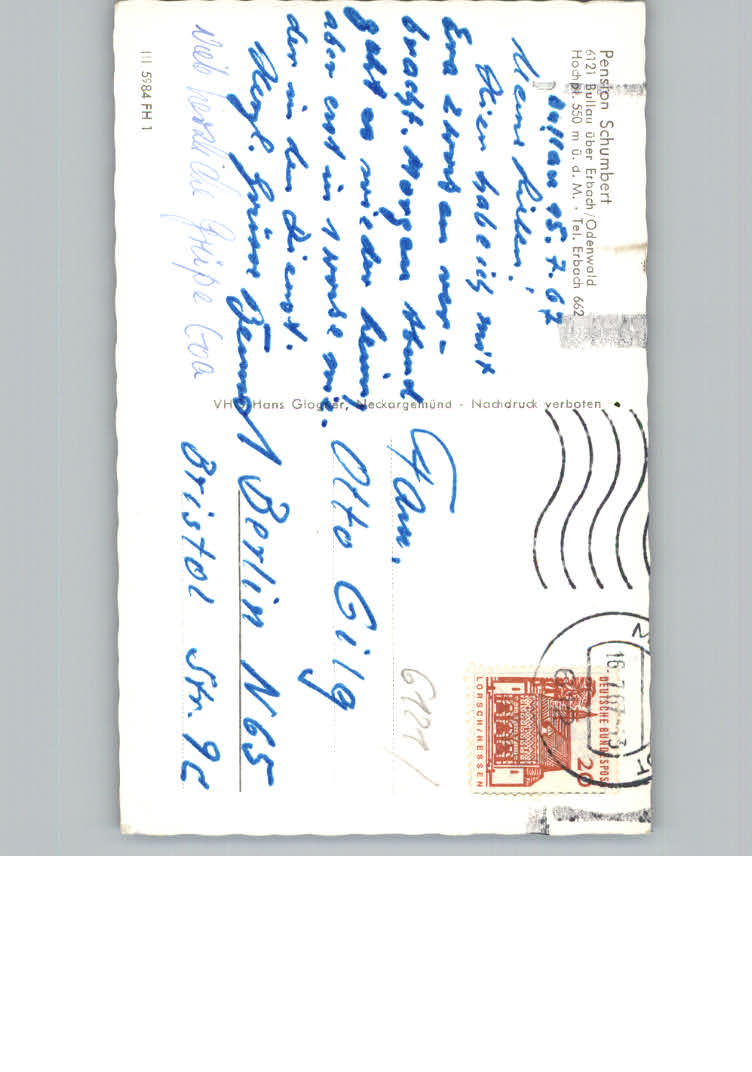 Pension Schumbert
6121 Bullau über Erbach/Odenwald
Höchpkt. 550 m ü. d. M. · Tel. Erbach 662
Bullau 15.7.67
Meine Lieben!
Hier habe ich mit
Eva 2 Wochen ver-
bracht. Morgen Abend
geht es wieder heim,
aber erst in 1 Woche wie-
der in den Dienst.
Herzl. Grüsse
Viele herzliche Grüße Eva
III 5984 FH 1
Hans Glogner, Neckargemünd - Nachdruck verboten
Fam.
Otto Gilg
1 Berlin N 65
Bristol Str. 9c
6121/
16.7.67
DEUTSCHE BUNDESPOST
20
LORSCH/HESSEN